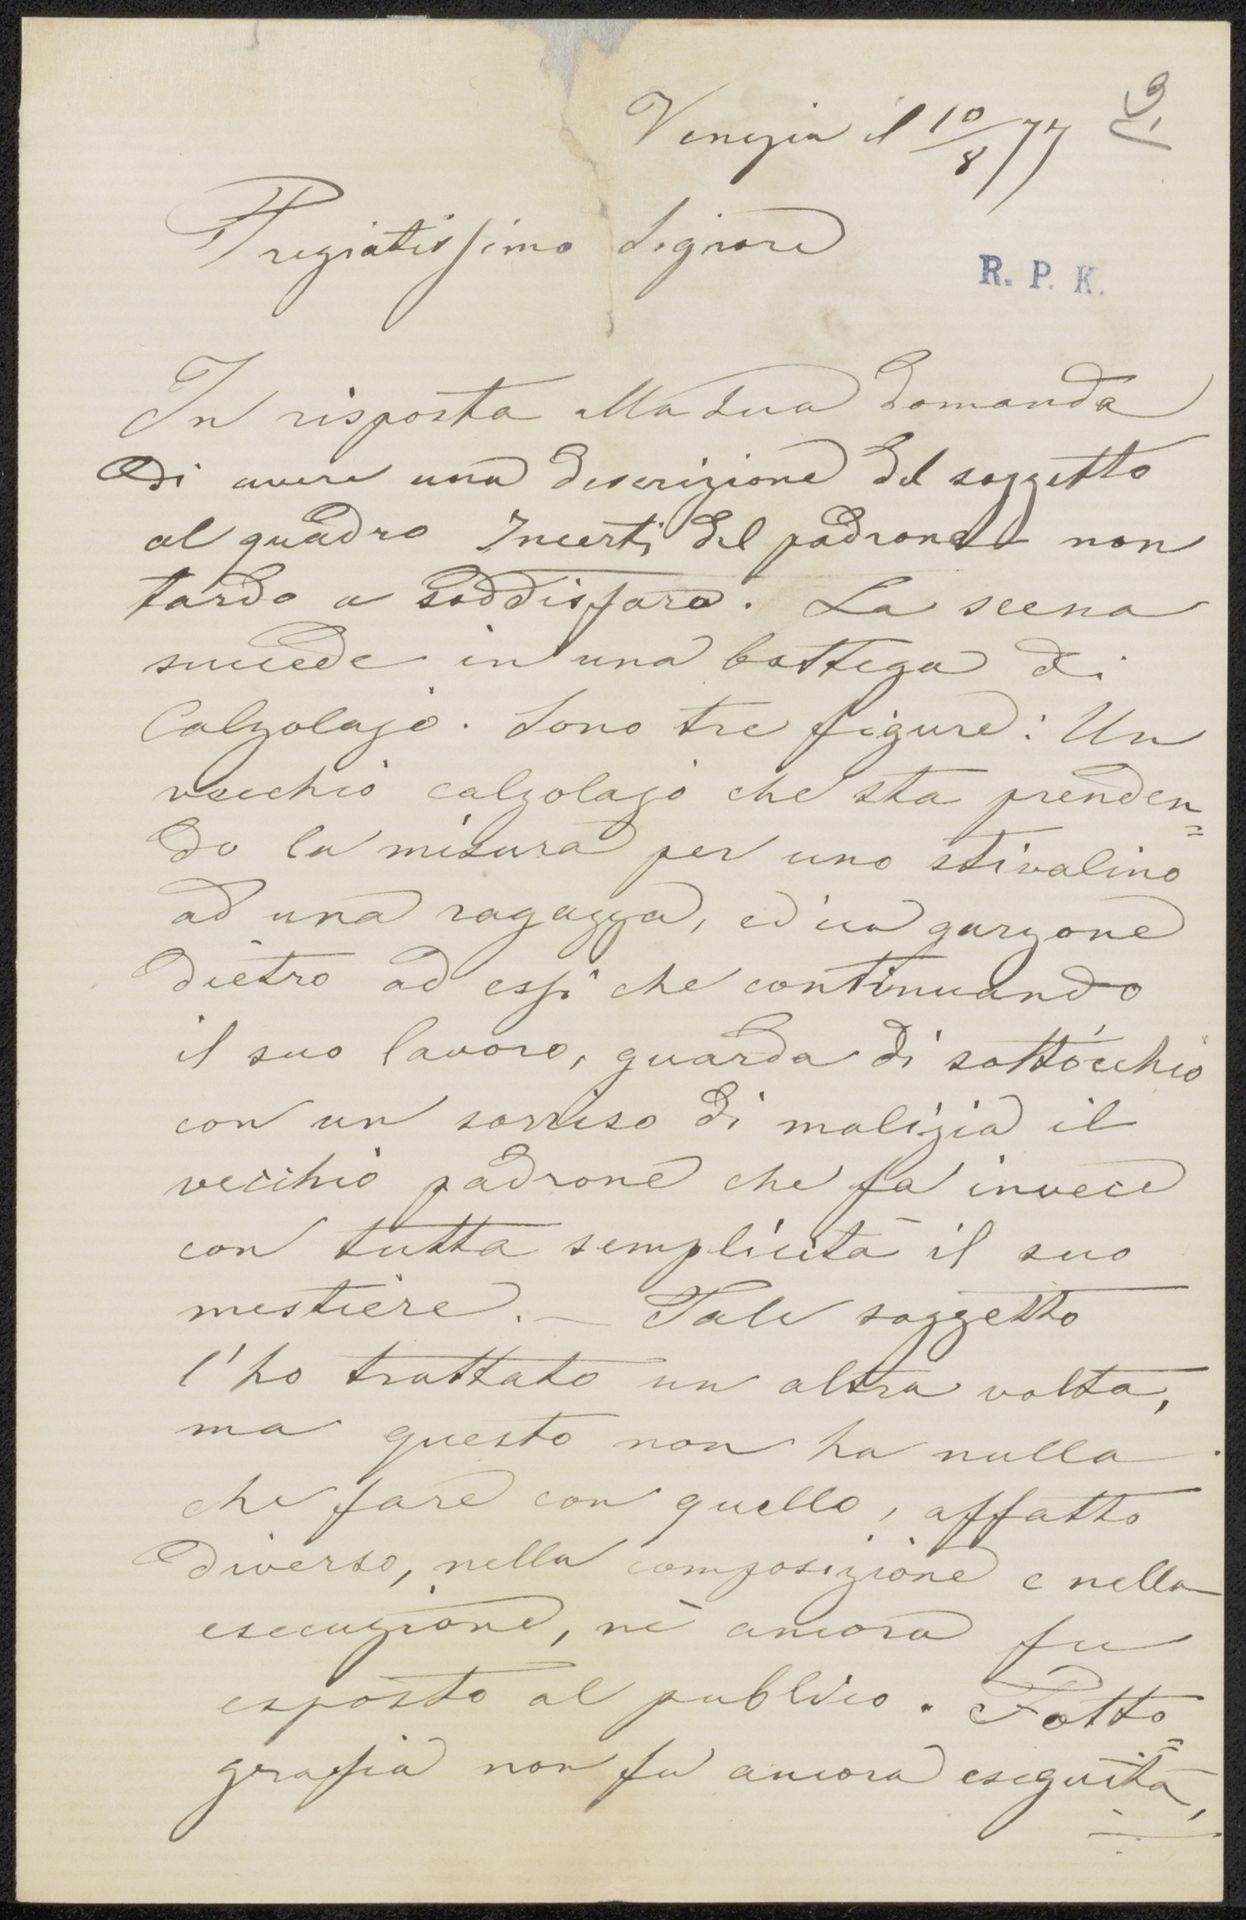 Venezia il 10/8/77
Pregiatissimo Signore
R. P. K.
In risposta alla sua domanda
di avere una descrizione del soggetto
al quadro Incerti del padrone non
tardo a soddisfare. La scena
succede in una bottega di
Calzolajo. Sono tre figure: Un
vecchio calzolajo che sta prenden=
do la misura per uno stivalino
ad una ragazza, ed un garzone
dietro ad essi che continuando
il suo lavoro, guarda di sottócchio
con un sorriso di malizia il
vecchio padrone che fa invece
con tutta semplicità il suo
mestiere. — Tale soggetto
l'ho trattato un altra volta,
ma questo non ha nulla
che fare con quello, affatto
diverso, nella composizione e nella
esecuzione, nè ancora fu
esposto al publico. Fotto=
grafia non fu ancora eseguita,